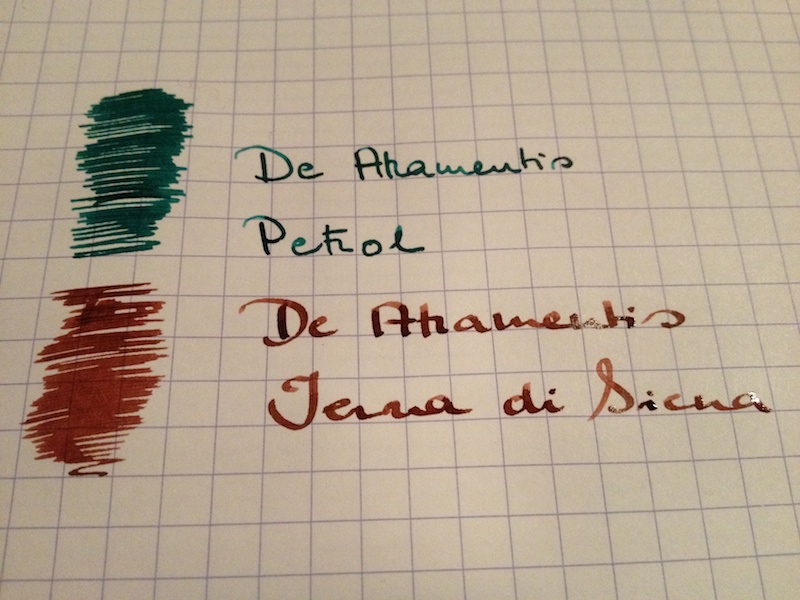 De Atramentis
Petrol
De Atramentis
Terra di Siena